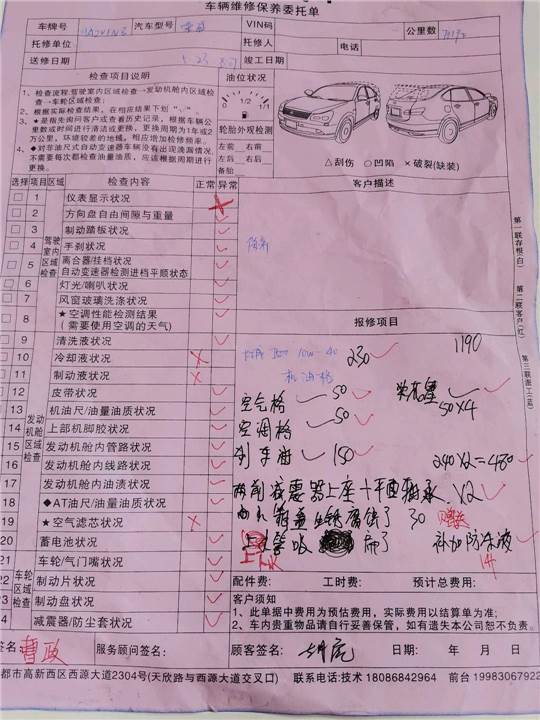 车辆维修保养委托单
车牌号 汽车型号 VIN码 公里数
托修单位 托修人 电话
送修日期 竣工日期
检查项目说明 油位状况
1、检查流程:驾驶室内区域检查→发动机舱内区域检
查→车轮区域检查;
2、根据实际检查结果，在相应结果下划“√”。
3、★是指先询问客户或查看历史记录，根据车辆公
里数或时间进行清洁或更换，更换周期为1年或2
万公里，环境较差的地域，相应增加检修频率。
4、◆对非油尺式自动变速器车辆没有出现洩漏情况，
不需要每次都检查量油质，应该根据周期进行
更换。
0 1/2 1/1
轮胎外观检测
左前 右前
左后 右后
备胎
△刮伤 ○凹陷 ×破裂(缺装)
选择 项目 区域 检查内容 正常 异常 客户描述
驾驶室内区域检查
1 仪表显示状况
2 方向盘自由间隙与重量
3 制动踏板状况
4 手刹状况
5 离合器/挂档状况
自动变速器检测进档平顺状态
6 灯光/喇叭状况
7 风窗玻璃洗涤状况
8 ★空调性能检测结果
(需要使用空调的天气)
报修项目
发动机舱区域检查
9 清洗液状况
10 冷却液状况
11 制动液状况
12 皮带状况
13 机油尺/油量油质状况
14 上部机脚胶状况
15 发动机舱内管路状况
16 发动机舱内线路状况
17 发动机舱内油渍状况
18 ◆AT油尺/油量油质状况
19 ★空气滤芯状况
20 蓄电池状况
车轮区域检查
21 车轮/气门嘴状况
22 制动片状况
23 制动盘状况
24 减震器/防尘套状况
10W-40 230 1190
机油格
空气格 50 火花塞 50X4
空调格 50
刹车油 150 240X2=480
两前减震器上座+平面轴承 X2
30 赠送
补加防冻液
配件费: 工时费: 预计总费用:
客户须知
1、此单据中费用为预估费用，实际费用以结算单为准;
2、车内贵重物品请自行妥善保管，如有遗失本公司恕不负责。
签名: 曹政 服务顾问签名: 顾客签名: 日期: 年 月 日
都市高新西区西源大道2304号(天欣路与西源大道交叉口) 联系电话:技术 18086842964 前台 19983067922
第一联存根(白) 第二联客户(红) 第三联施工(蓝)